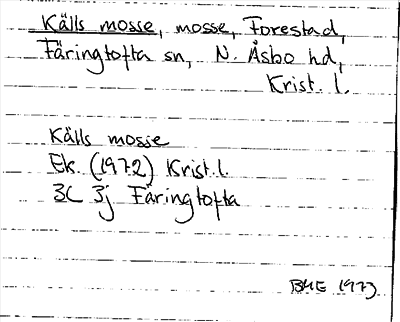 Källs mosse, mosse, Forestad,
Färingtofta sn, N. Åsbo hd,
Krist. l.
Källs mosse
Ek. (1972) Krist. l.
3C 3j Färingtofta
BHE 1973